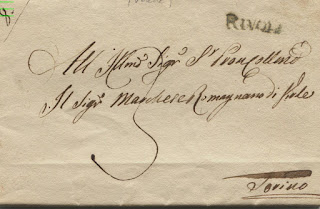 RIVOLI
All' Illmo Sigr Sr Pron Collmo
Il Sigr Marchese Romagnano di Virle
Torino